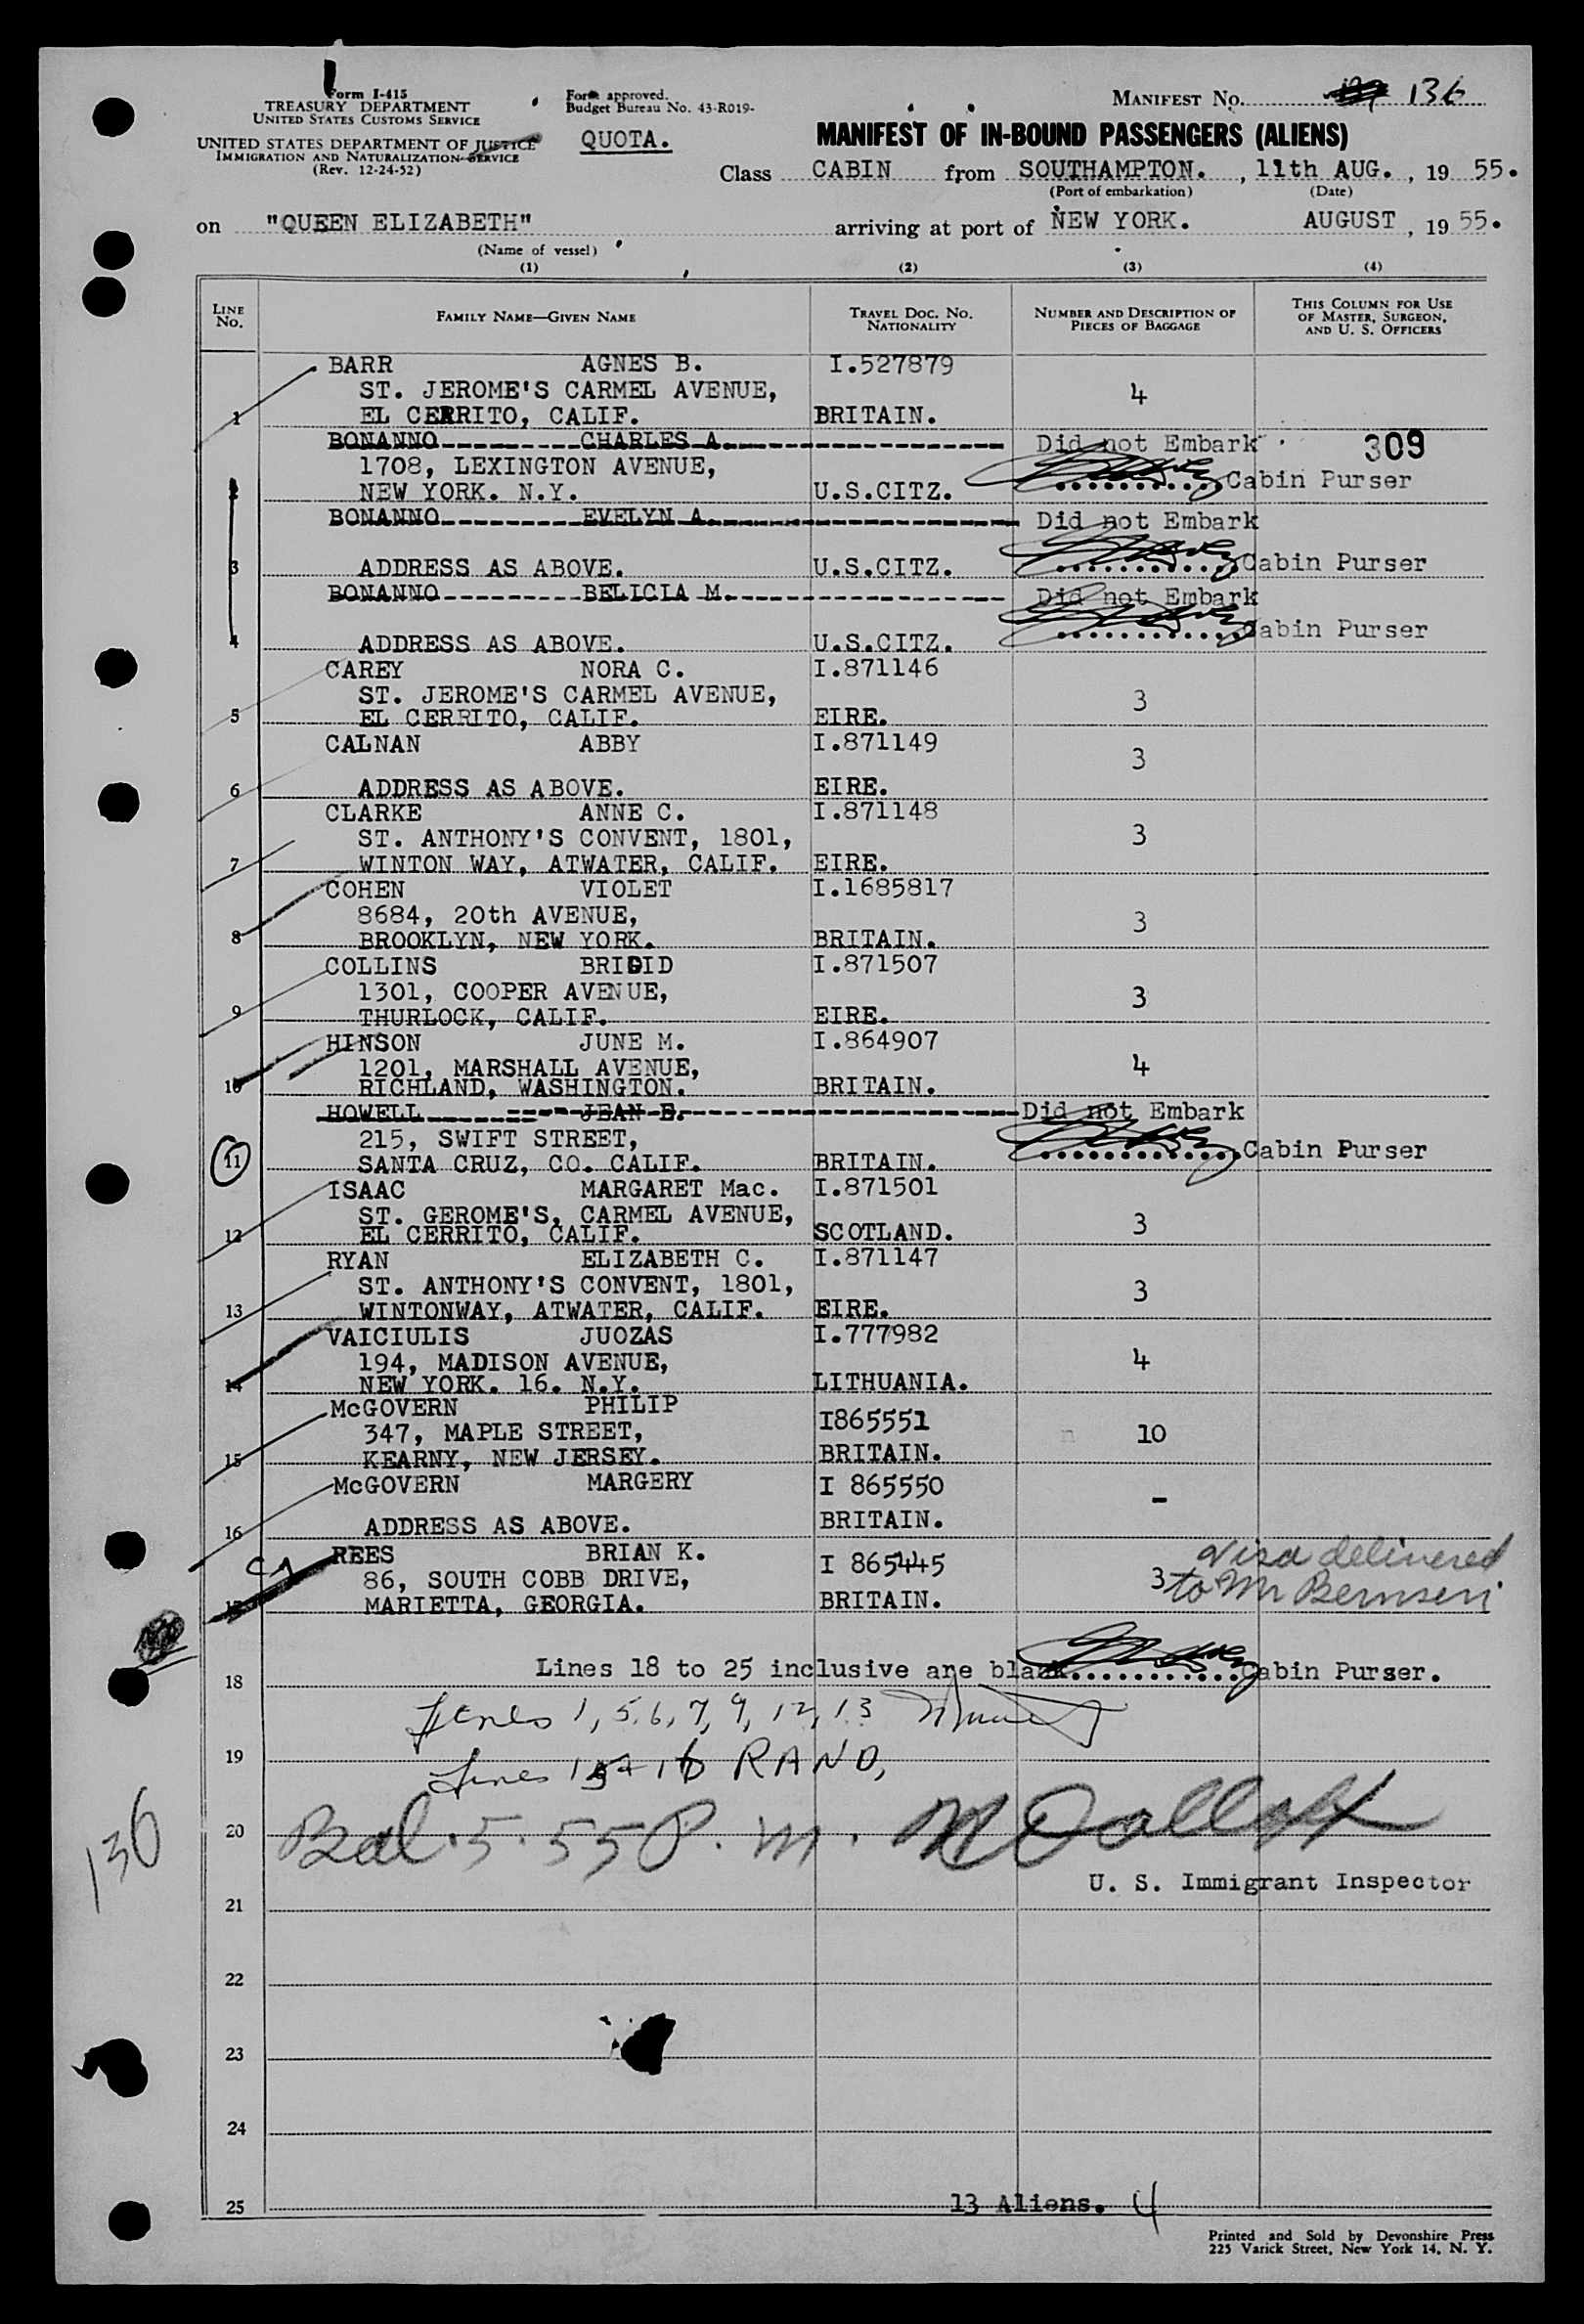 Form I-415
TREASURY DEPARTMENT
UNITED STATES CUSTOMS SERVICE
UNITED STATES DEPARTMENT OF JUSTICE
IMMIGRATION AND NATURALIZATION SERVICE
(Rev. 12-24-52)
Form approved.
Budget Bureau No. 43-R019-
QUOTA.
MANIFEST NO. 136
MANIFEST OF IN-BOUND PASSENGERS (ALIENS)
Class CABIN from SOUTHAMPTON. , 11th AUG. , 19 55.
(Port of embarkation) (Date)
on "QUEEN ELIZABETH" arriving at port of NEW YORK. AUGUST , 19 55.
(Name of vessel)
(1) (2) (3) (4)
LINE NO.
FAMILY NAME—GIVEN NAME
TRAVEL DOC. NO. NATIONALITY
NUMBER AND DESCRIPTION OF PIECES OF BAGGAGE
THIS COLUMN FOR USE OF MASTER, SURGEON, AND U. S. OFFICERS
BARR AGNES B. I.527879
ST. JEROME'S CARMEL AVENUE, 4
1 EL CERRITO, CALIF. BRITAIN.
BONANNO CHARLES A. Did not Embark 309
1708, LEXINGTON AVENUE,
2 NEW YORK. N.Y. U.S.CITZ. Cabin Purser
BONANNO EVELYN A. Did not Embark
3 ADDRESS AS ABOVE. U.S.CITZ. Cabin Purser
BONANNO BELICIA M. Did not Embark
4 ADDRESS AS ABOVE. U.S.CITZ. Cabin Purser
CAREY NORA C. I.871146
ST. JEROME'S CARMEL AVENUE, 3
5 EL CERRITO, CALIF. EIRE.
CALNAN ABBY I.871149
3
6 ADDRESS AS ABOVE. EIRE.
CLARKE ANNE C. I.871148
ST. ANTHONY'S CONVENT, 1801, 3
7 WINTON WAY, ATWATER, CALIF. EIRE.
COHEN VIOLET I.1685817
8684, 20th AVENUE, 3
8 BROOKLYN, NEW YORK. BRITAIN.
COLLINS BRIGID I.871507
1301, COOPER AVENUE, 3
9 THURLOCK, CALIF. EIRE.
HINSON JUNE M. I.864907
1201, MARSHALL AVENUE, 4
10 RICHLAND, WASHINGTON. BRITAIN.
HOWELL JEAN E. Did not Embark
215, SWIFT STREET,
11 SANTA CRUZ, CO. CALIF. BRITAIN. Cabin Purser
ISAAC MARGARET Mac. I.871501
ST. GEROME'S, CARMEL AVENUE, 3
12 EL CERRITO, CALIF. SCOTLAND.
RYAN ELIZABETH C. I.871147
ST. ANTHONY'S CONVENT, 1801, 3
13 WINTONWAY, ATWATER, CALIF. EIRE.
VAICIULIS JUOZAS I.777982
194, MADISON AVENUE, 4
14 NEW YORK. 16. N.Y. LITHUANIA.
McGOVERN PHILIP I865551
347, MAPLE STREET, 10
15 KEARNY, NEW JERSEY. BRITAIN.
McGOVERN MARGERY I 865550
-
16 ADDRESS AS ABOVE. BRITAIN.
REES BRIAN K. I 865445 visa delivered
86, SOUTH COBB DRIVE, 3 to Mr
17 MARIETTA, GEORGIA. BRITAIN.
18 Lines 18 to 25 inclusive are blank Cabin Purser.
Lines 1, 5, 6, 7, 9, 12, 13
19
Lines 15 + 16 RAND,
20 Bal. 5.55 P.m.
136
U. S. Immigrant Inspector
21
22
23
24
25 13 Aliens. 4
Printed and Sold by Devonshire Press
225 Varick Street, New York 14, N. Y.